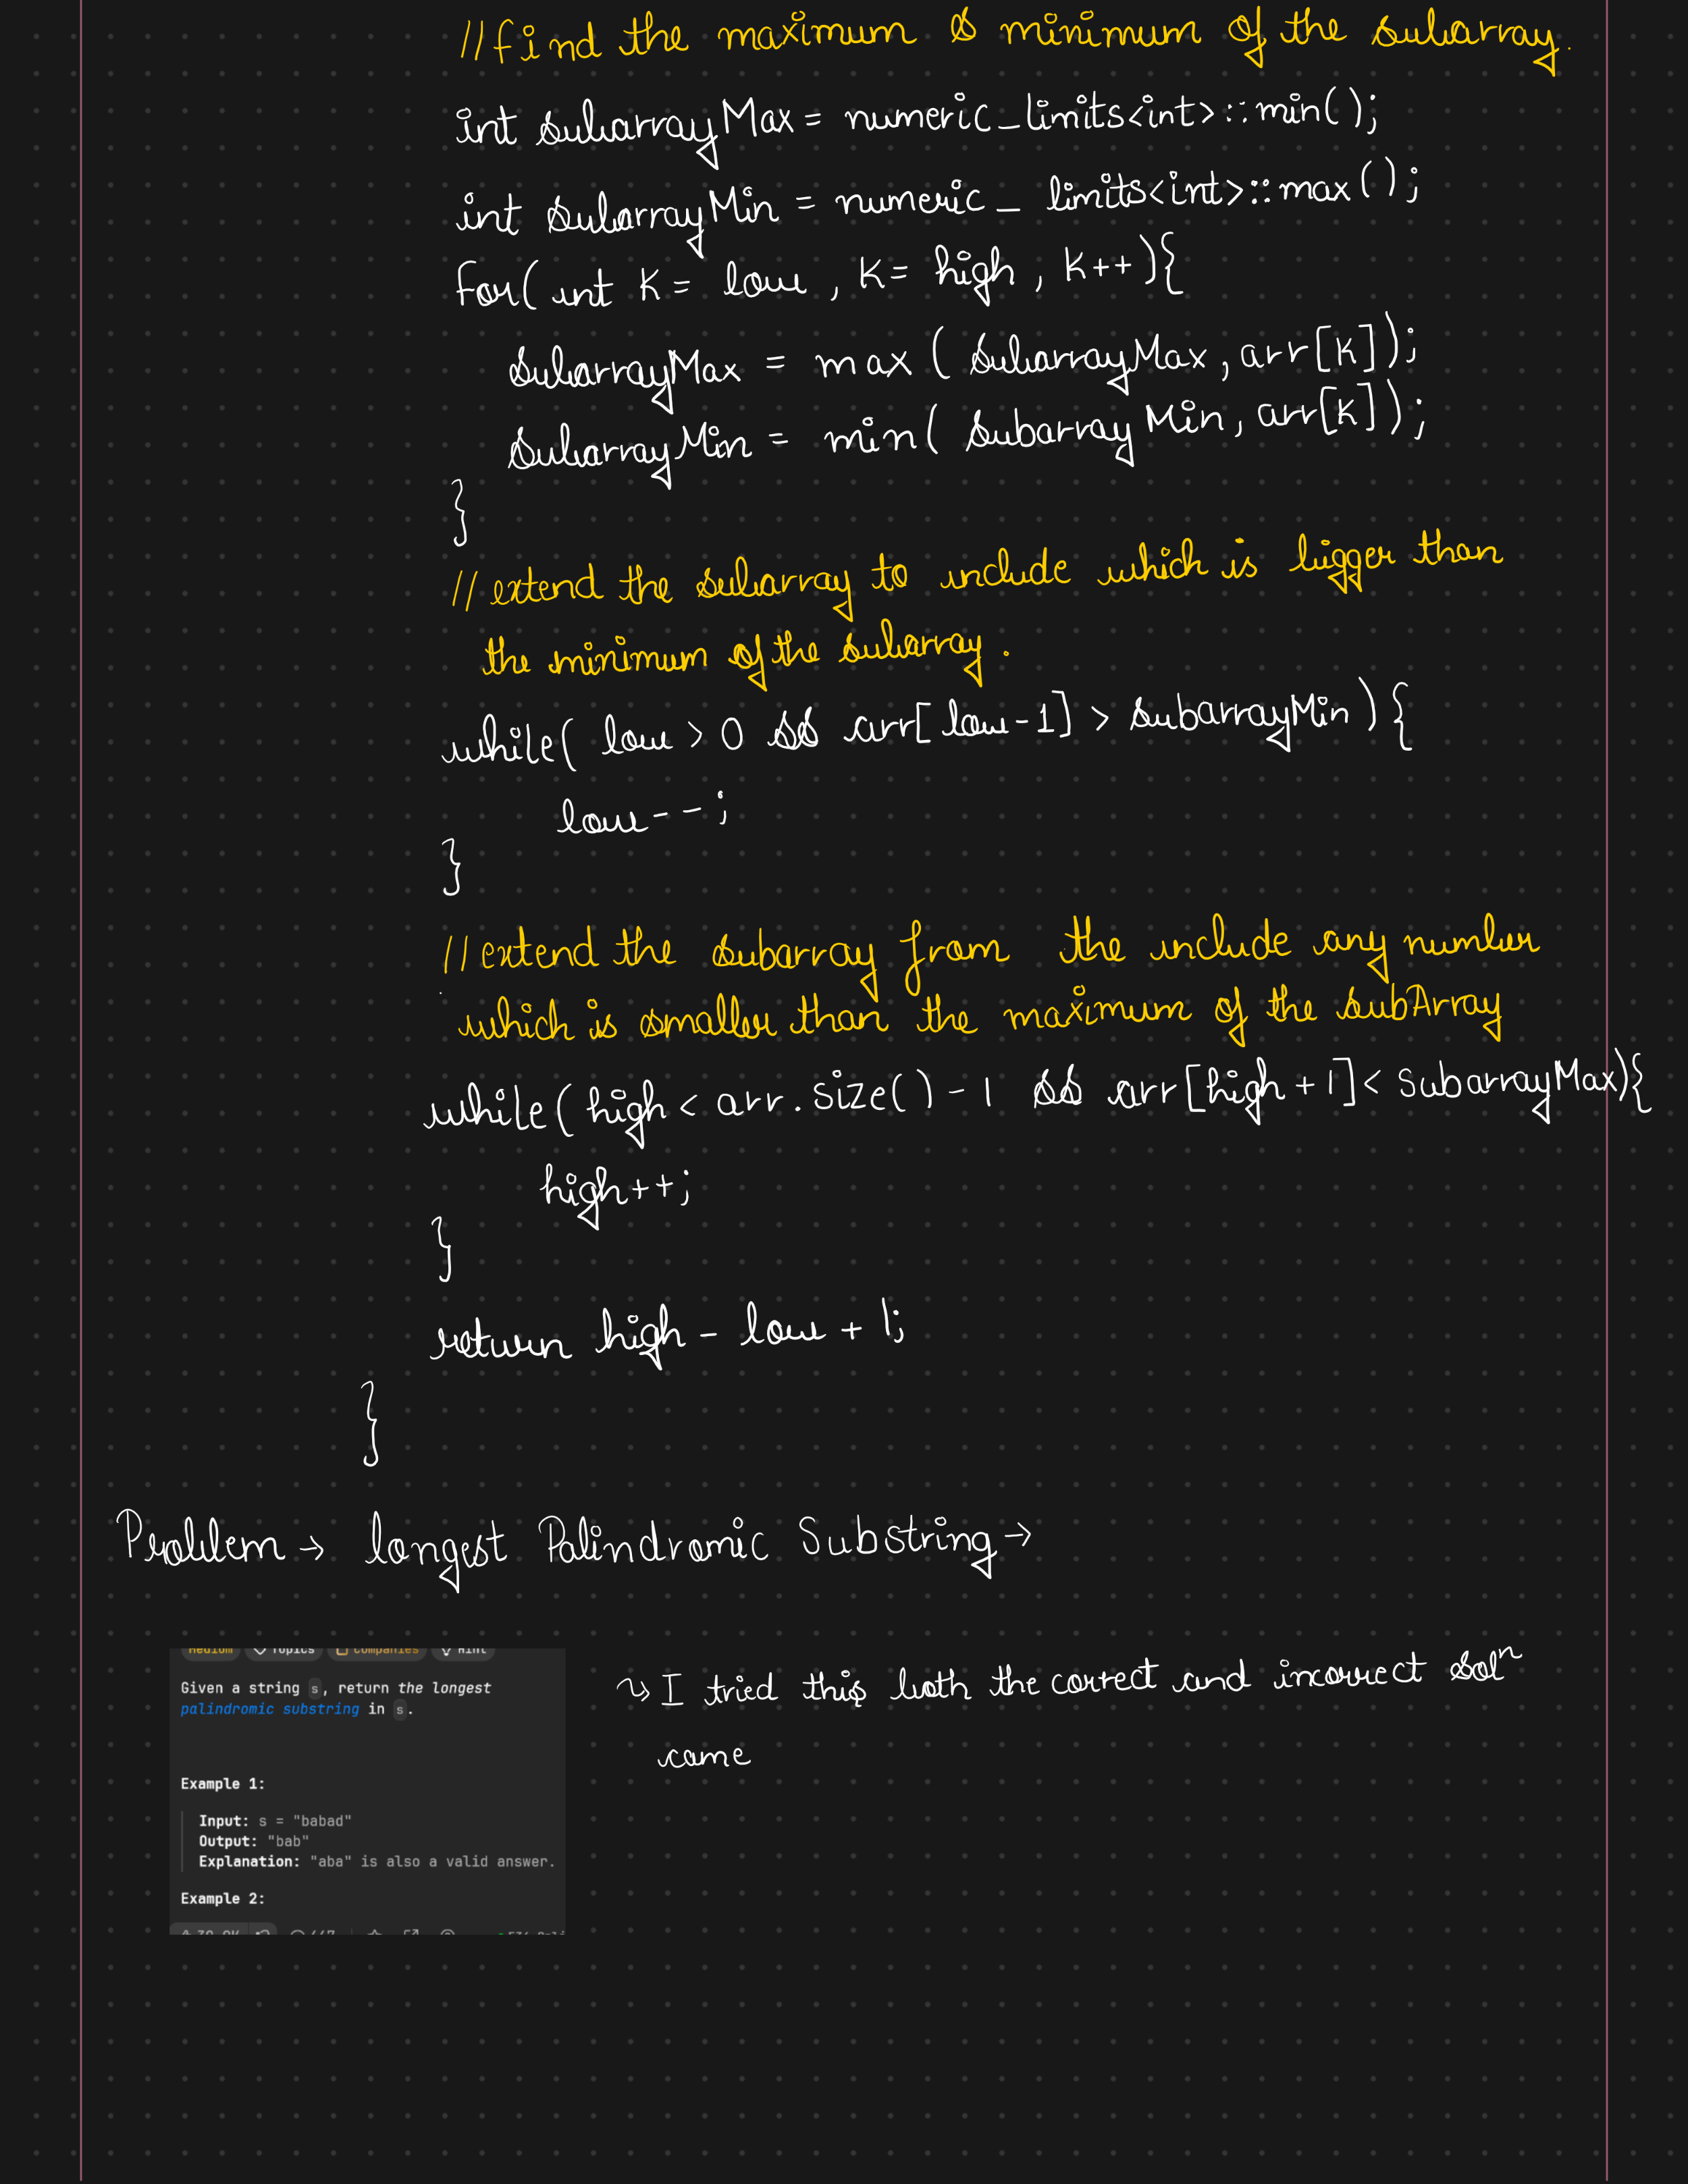 //find the maximum & minimum of the subarray.
int subarrayMax = numeric_limits<int>::min();
int subarrayMin = numeric_limits<int>::max();
for( int K = low , K = high , K++){
subarrayMax = max ( subarrayMax, arr[K]);
subarrayMin = min( subarrayMin, arr[K]);
}
// extend the subarray to include which is bigger than
the minimum of the subarray.
while( low > 0 && arr[low-1] > subarrayMin ) {
low--;
}
// extend the subarray from the include any number
which is smaller than the maximum of the subArray
while( high < arr.size() - 1 && arr[high + 1] < SubarrayMax){
high++;
}
return high - low + 1;
}
Problem → longest Palindromic Substring →
Medium Topics Companies Hint
Given a string s, return the longest
palindromic substring in s.
↝ I tried this both the correct and incorrect solⁿ
came
Example 1:
Input: s = "babad"
Output: "bab"
Explanation: "aba" is also a valid answer.
Example 2: